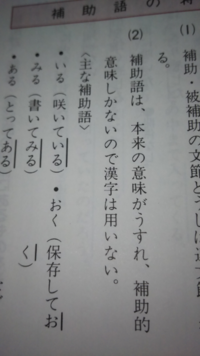 補助語の
(1) 補助・被補助の文節
る。
(2) 補助語は、本来の意味がうすれ、補助的
意味しかないので漢字は用いない。
〈主な補助語〉
• いる（咲いている） • おく（保存してお
く）
• みる（書いてみる）
• ある（とってある）